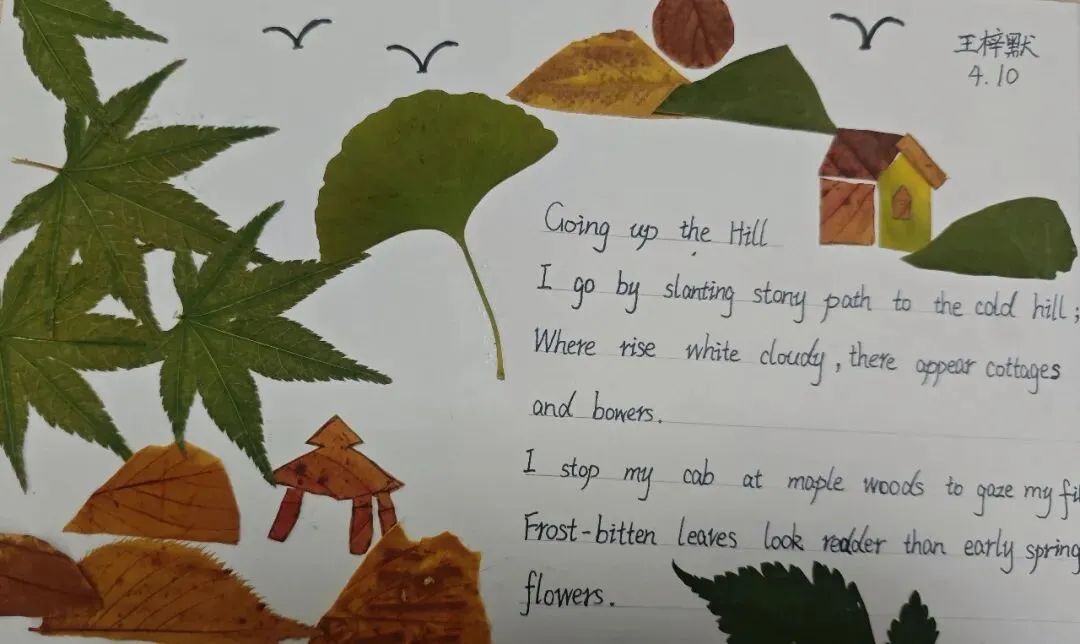 王梓默
4.10
Going up the Hill
I go by slanting stony path to the cold hill;
Where rise white cloudy, there appear cottages
and bowers.
I stop my cab at maple woods to gaze my
Frost-bitten leaves look redder than early spring
flowers.